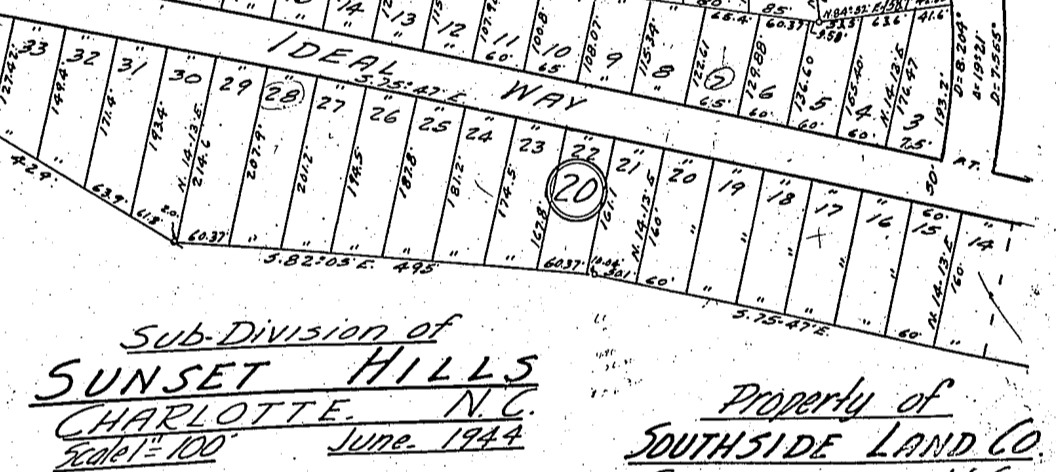 14 13 12 11 10 9 8 7 6 5 4 3
107.9 100.8' 108.07' 115.24' 122.61 129.88' 136.60 165.40' N.14-13'E 176.47 193.2'
60' 65' 65' 60' 60' 60' 75'
65.4 85' 60.37 53.5 63.6 41.6
9.58'
D=8.204°
D=7.565°
P.T.
50'
IDEAL WAY
S.75°-47'E.
33 32 31 30 29 28 27 26 25 24 23 22 21 20 19 18 17 16 15 14
20
127.42' 149.4' 171.4' 193.4' N.14-13'E. 214.6 207.9' 201.2' 194.5' 187.8' 181.2' 174.5' 167.8' 161.1 N.14-13'E 160' N.14-13'E 160'
42.9' 63.9' 61.3' 60.37' 60.37' 10.04' 50.1 60' 60' 60'
S.82°-05'E. 495'
S.75°-47'E.
Sub-Division of
SUNSET HILLS
CHARLOTTE. N.C.
Scale 1"=100' June- 1944
Property of
SOUTHSIDE LAND CO.